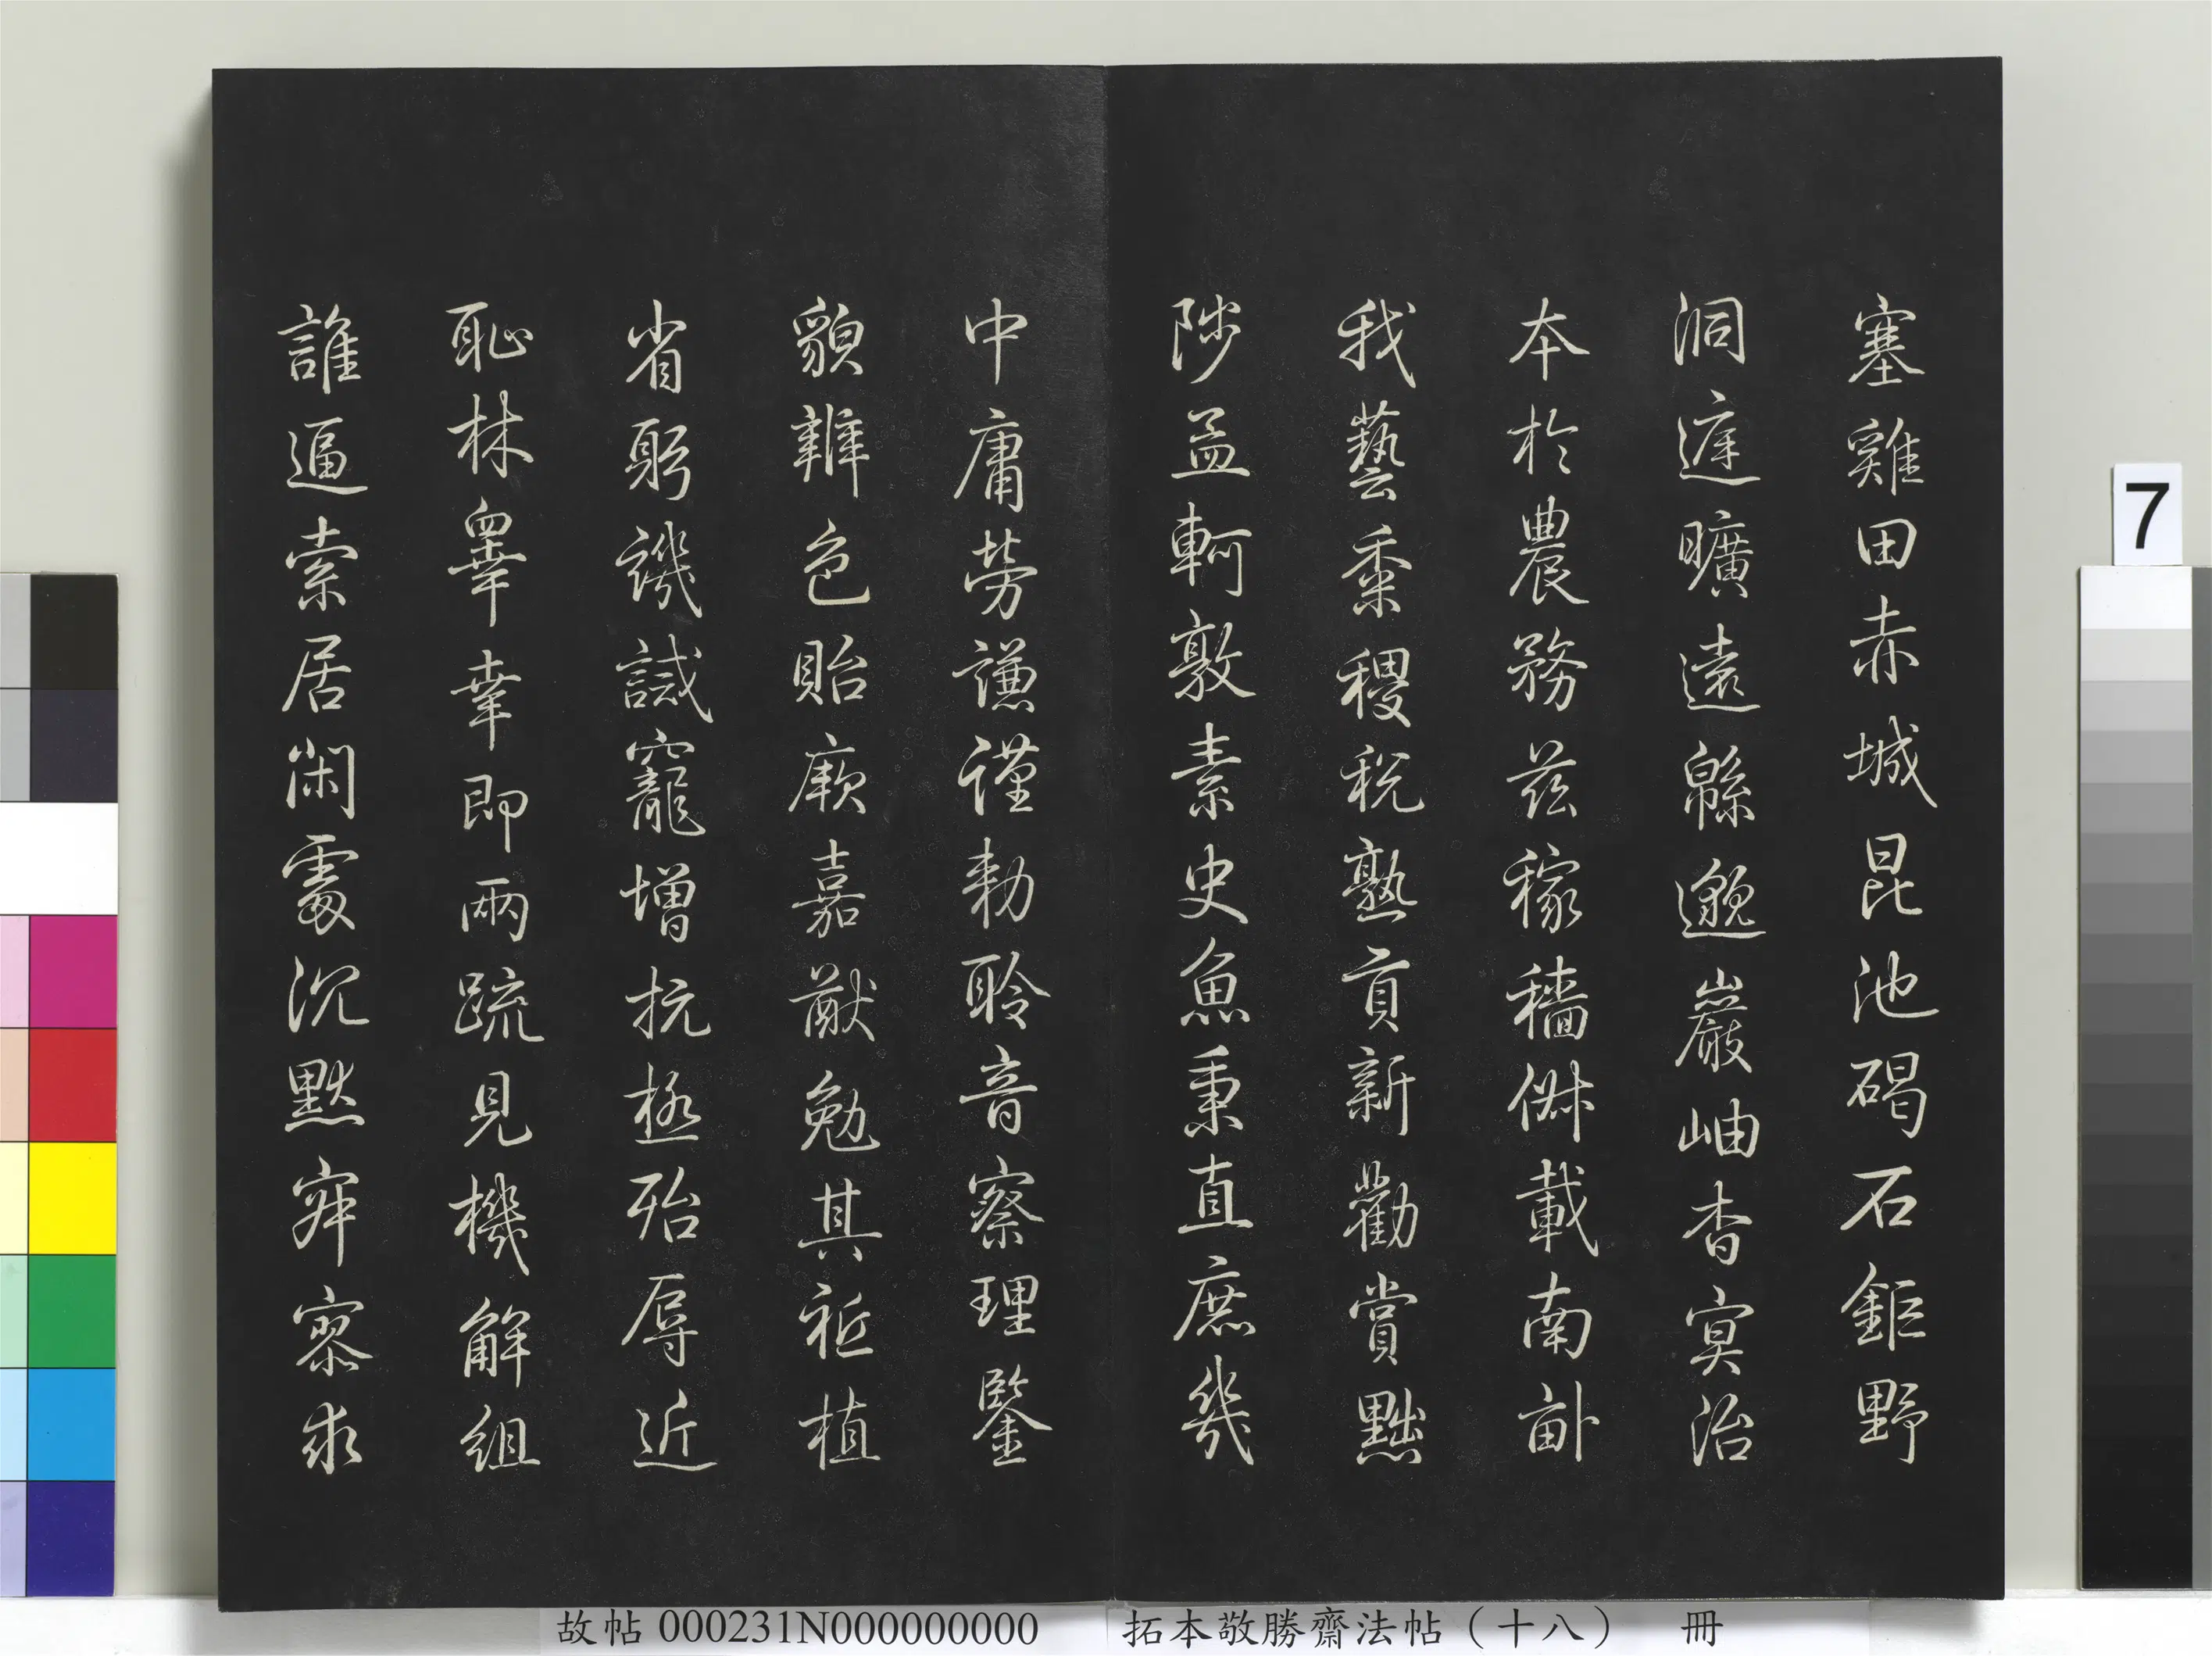 塞雞田赤城昆池碣石鉅野
洞庭曠遠緜邈巖岫杳冥治
本於農務茲稼穡俶載南畝
我藝黍稷稅熟貢新勸賞黜
陟孟軻敦素史魚秉直庶幾
中庸勞謙謹勅聆音察理鑒
貌辨色貽厥嘉猷勉其祗植
省躬譏誡寵增抗極殆辱近
恥林皋幸即兩疏見機解組
誰逼索居閑處沉默寂寥求
7
故帖 000231N000000000 拓本敬勝齋法帖（十八） 冊